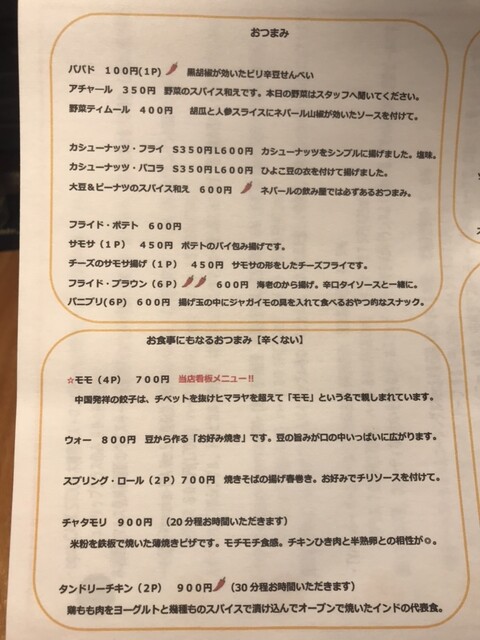 おつまみ
パパド １００円(１P) 黒胡椒が効いたピリ辛豆せんべい
アチャール ３５０円 野菜のスパイス和えです。本日の野菜はスタッフへ聞いてください。
野菜ティムール ４００円 胡瓜と人参スライスにネパール山椒が効いたソースを付けて。
カシューナッツ・フライ S３５０円 L６００円 カシューナッツをシンプルに揚げました。塩味。
カシューナッツ・パコラ S３５０円 L６００円 ひよこ豆の衣を付けて揚げました。
大豆＆ピーナツのスパイス和え ６００円 ネパールの飲み屋では必ずあるおつまみ。
フライド・ポテト ６００円
サモサ（１P） ４５０円 ポテトのパイ包み揚げです。
チーズのサモサ揚げ（１P） ４５０円 サモサの形をしたチーズフライです。
フライド・プラウン（６P） ６００円 海老のから揚げ。辛口タイソースと一緒に。
パニプリ(６P) ６００円 揚げ玉の中にジャガイモの具を入れて食べるおやつ的なスナック。
お食事にもなるおつまみ【辛くない】
☆モモ（４P） ７００円 当店看板メニュー‼
中国発祥の餃子は、チベットを抜けヒマラヤを超えて「モモ」という名で親しまれています。
ウォー ８００円 豆から作る「お好み焼き」です。豆の旨みが口の中いっぱいに広がります。
スプリング・ロール（２P）７００円 焼きそばの揚げ春巻き。お好みでチリソースを付けて。
チャタモリ ９００円 （20分程お時間いただきます）
米粉を鉄板で焼いた薄焼きピザです。モチモチ食感。チキンひき肉と半熟卵との相性が◎。
タンドリーチキン（２P） ９００円 （30分程お時間いただきます）
鶏もも肉をヨーグルトと幾種ものスパイスで漬け込んでオーブンで焼いたインドの代表食。